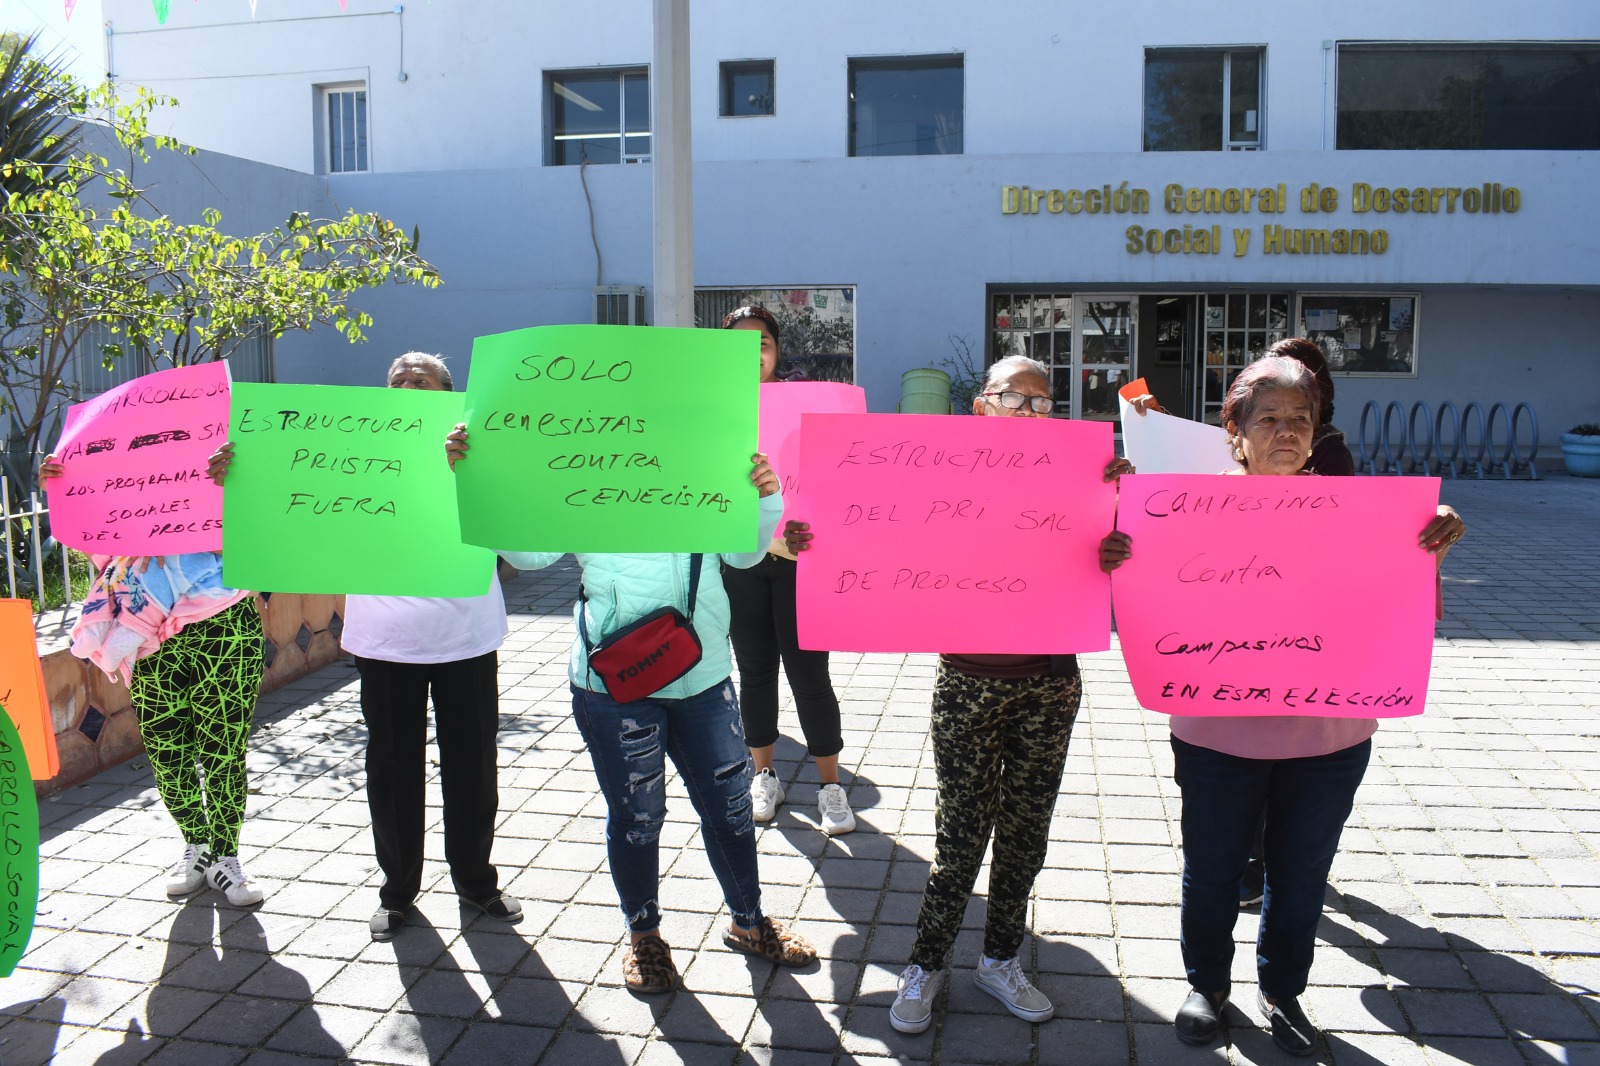 Dirección General de Desarrollo
Social y Humano
DESARROLLO
YA SA
LOS PROGRAMAS
SOCIALES
DEL PROCES
ESTRUCTURA
PRIISTA
FUERA
SOLO
CENESISTAS
CONTRA
CENECISTAS
ESTRUCTURA
DEL PRI SAL
DE PROCESO
CAMPESINOS
Contra
CAMPESINOS
EN ESTA ELECCIÓN
TOMMY
ARROLLO SOCIAL